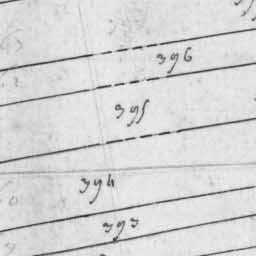 396
395
394
393